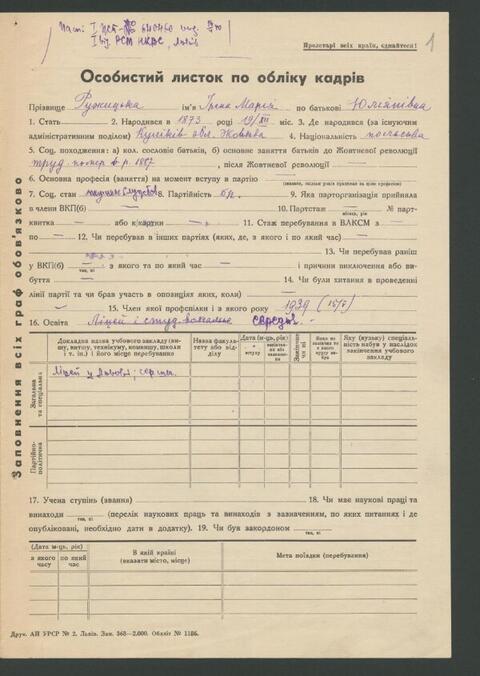 Пролетарі всіх країн, єднайтеся!
1
Особистий листок по обліку кадрів
Прізвище Ружицька ім'я Ірена Марія по батькові Юліянівна
1. Стать 2. Народився в 1873 році 19/XII міс. 3. Де народився (за існуючим
адміністративним поділом) Куликів обл. Жовква 4. Національність польська
5. Соц. походження: а) кол. сословіє батьків, б) основне заняття батьків до Жовтневої революції
труд. помер в р. 1887, після Жовтневої революції —
6. Основна професія (заняття) на момент вступу в партію —
7. Соц. стан 8. Партійність б/п. 9. Яка парторганізація прийняла
в члени ВКП(б) — 10. Партстаж — № парт-
місяць, рік
квитка — або картки — 11. Стаж перебування в ВЛКСМ з —
по — 12. Чи перебував в інших партіях (яких, де, з якого і по який час) —
13. Чи перебував раніш
у ВКП(б) з якого та по який час — і причини виключення або ви-
так, ні
буття — 14. Чи були хитання в проведенні
лінії партії та чи брав участь в опозиціях яких, коли)
15. Член якої профспілки і з якого року 1939
16. Освіта Ліцей і студ. вокальне середн.
Докладна назва учбового закладу (ви-
шу, втишу, технікуму, комвишу, школи
і т. ін.) і його місце перебування
Назва факуль-
тету або від-
ділу
Дата (м-ць, рік)
вступу
Закінчив
чи ні
Яку (вузьку) спеціаль-
ність набув у наслідок
закінчення учбового
закладу
Загальна
та спеціальна
Ліцей у Львові;
Партійно-
політична
17. Учена ступінь (звання) 18. Чи має наукові праці та
винаходи (перелік наукових праць та винаходів з зазначенням, по яких питаннях і де
так, ні
опубліковані, необхідно дати в додатку). 19. Чи був закордоном
так, ні
(Дата м-ць, рік)
з якого
часу
по який
час
В якій країні
(вказати місто, місце)
Мета поїздки (перебування)
Заповнення всіх граф обов'язково
Друк. АН УРСР № 2. Львів. Зам. 363—2.000. Обліт № 1186.